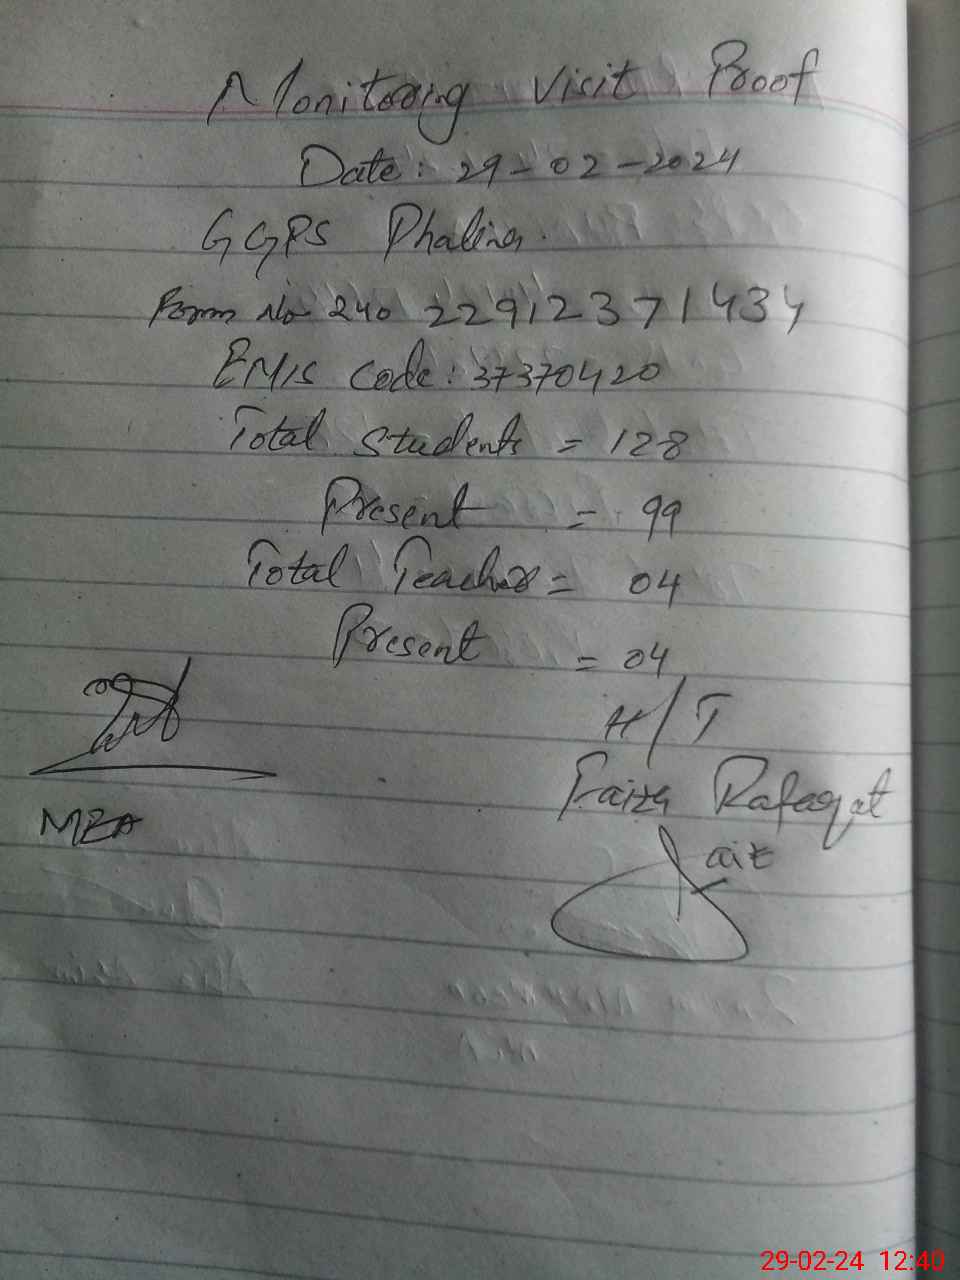 Monitoring Visit Proof
Date: 29-02-2024
GGPS Phalina.
Form No 240 22912371434
EMIS Code: 37370420
Total Students = 128
Present = 99
Total Teacher = 04
Present = 04
H/T
Faiza Rafaqat
MEA
29-02-24 12:40